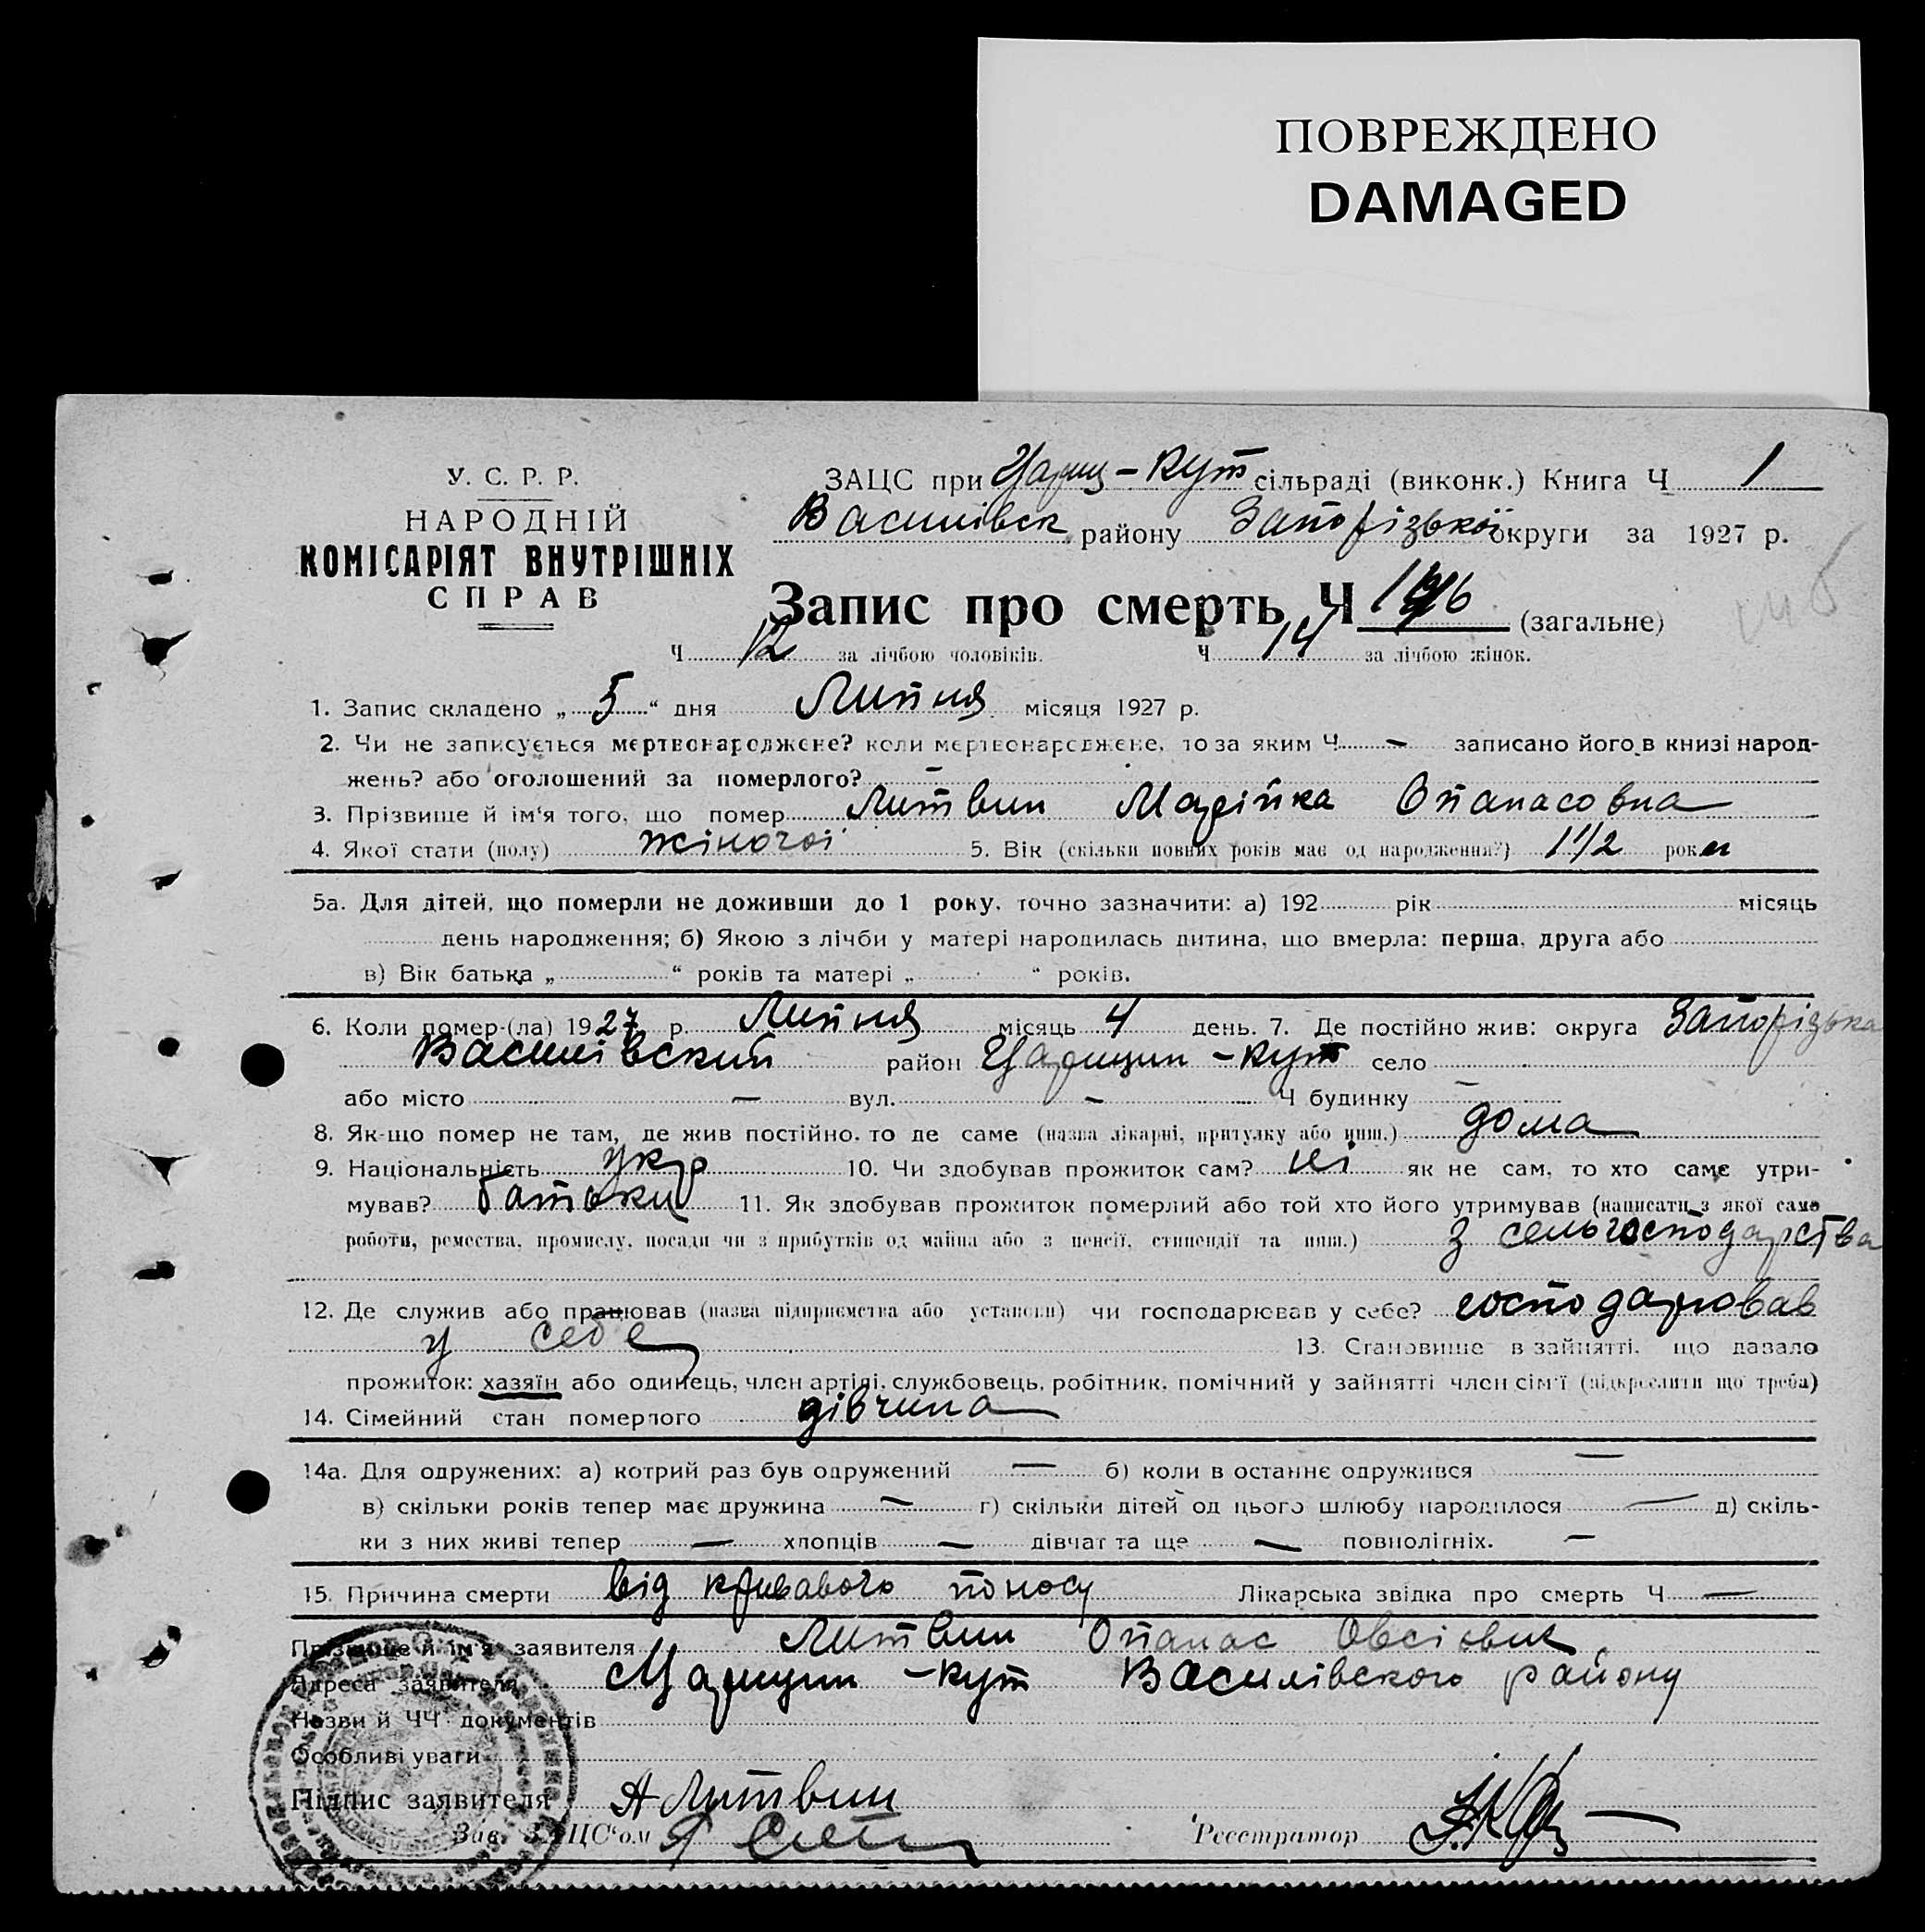 ПОВРЕЖДЕНО
DAMAGED
У. С. Р. Р.
НАРОДНІЙ
КОМІСАРІЯТ ВНУТРІШНІХ
СПРАВ
ЗАЦС при Цариц-Кут сільраді (виконк.) Книга Ч 1
Василівск району Запорізької округи за 1927 р.
Запис про смерть Ч (загальне)
Ч 12 за лічбою чоловіків. Ч 14 за лічбою жінок.
1. Запис складено „ 5 “ дня Липня місяця 1927 р.
2. Чи не записується мертвонароджене? коли мертвонароджене, то за яким Ч – записано його в книзі народ-
жень? або оголошений за померлого? –
3. Прізвище й ім'я того, що помер Литвин Марійка Опанасовна
4. Якої стати (полу) жіночоі 5. Вік (скільки повних років має од народження?) 1 1/2 роки
5а. Для дітей, що померли не доживши до 1 року, точно зазначити: а) 192 рік місяць
день народження; б) Якою з лічби у матері народилась дитина, що вмерла: перша, друга або
в) Вік батька „ “ років та матері „ “ років.
6. Коли помер-(ла) 1927 р. Липня місяць 4 день. 7. Де постійно жив: округа Запорізька
Василівский район Царицин-кут село
або місто – вул. – Ч будинку –
8. Як-що помер не там, де жив постійно, то де саме (назва лікарні, притулку або инш.) дома
9. Національність укр 10. Чи здобував прожиток сам? ні як не сам, то хто саме утри-
мував? батьки 11. Як здобував прожиток померлий або той хто його утримував (написати з якої само
роботи, ремества, промислу, посади чи з прибутків од майна або з пенсії, стипендії та инш.) з сельгосподарства
12. Де служив або працював (назва підприємства або установи) чи господарював у себе? господарював
у себе 13. Становище в зайнятті, що давало
прожиток: хазяїн або одинець, член артілі, службовець, робітник, помічний у зайнятті член сім'ї (підкреслити що треба)
14. Сімейний стан померлого дівчина
14а. Для одружених: а) котрий раз був одружений – б) коли в останнє одружився –
в) скільки років тепер має дружина – г) скільки дітей од цього шлюбу народилося – д) скіль-
ки з них живі тепер – хлопців – дівчат та ще – повнолітніх. –
15. Причина смерти від кривавого поносу Лікарська звідка про смерть Ч –
Прізвище й ім'я заявителя Литвин Опанас Овсієвич
Адреса заявителя Царицин-кут Василівского району
Назви й ЧЧ документів
Особливі уваги
Підпис заявителя А Литвин
Зав. ЗАЦС'ом Реєстратор